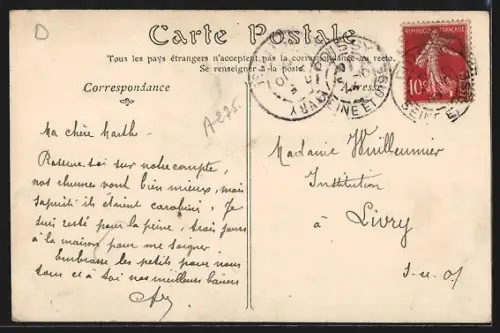 D
Carte Postale
Tous les pays étrangers n'acceptent pas la correspondance au recto.
Se renseigner à la poste.
Correspondance
A-275.
RÉPUBLIQUE FRANÇAISE
10c
POISSY
SEINE ET OISE
LIVRY
Ma chère Marthe
Rassure-toi sur notre compte,
nos rhumes vont bien mieux, mais
sapristi ils étaient carabinés. Je
suis resté pour la peine, trois jours
à la maison pour me soigner.
Embrasse les petits pour nous
tous et à toi nos meilleurs baisers
Madame Vuilleumier
Institution
à Livry
S-et-O